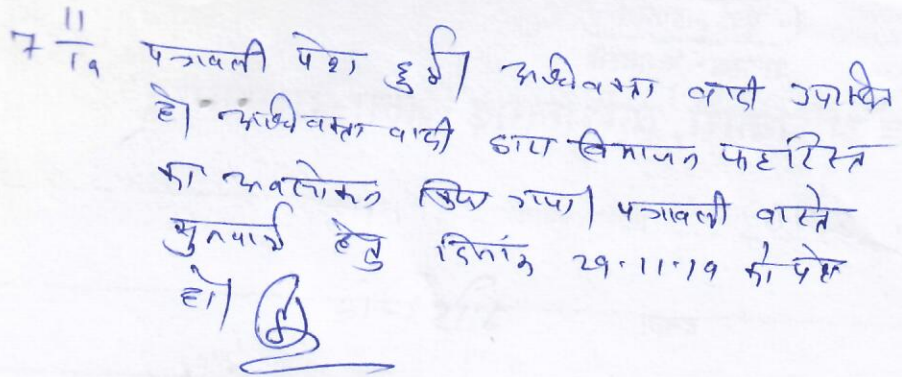 7 11/19 पत्रावली पेश हुई। अधिवक्ता वादी उपस्थित
है। अधिवक्ता वादी द्वारा विभाजन फहरिस्त
का अवलोकन किया गया। पत्रावली वास्ते
सुनवाई हेतु दिनांक 29.11.19 को पेश
हो।